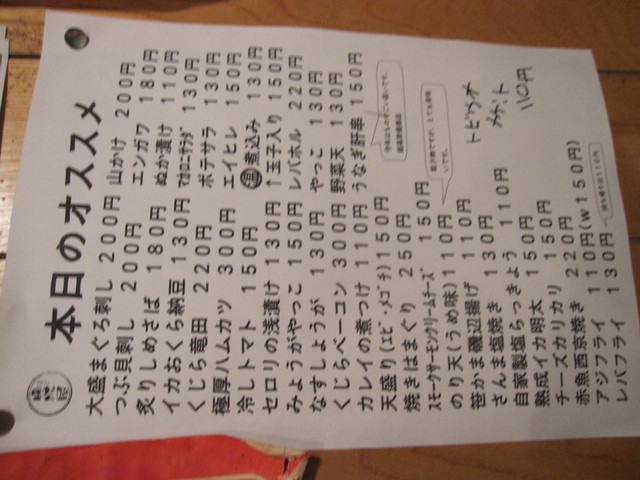 本日のオススメ
大盛まぐろ刺し 200円
つぶ貝刺し 200円
炙りしめさば 180円
イカおくら納豆 130円
くじら竜田 220円
極厚ハムカツ 300円
冷しトマト 150円
セロリの浅漬け 130円
みょうがやっこ 150円
なすしょうが 130円
くじらベーコン 300円
カレイの煮つけ 110円
天盛り(エビ・メゴチ)150円
焼きはまぐり 250円
スモークサーモンクリームチーズ 150円
のり天(うめ味)110円
笹かま磯辺揚げ 110円
さんま塩焼き 130円
自家製塩らっきょう 110円
熟成イカ明太 150円
チーズカリカリ 150円
赤魚西京焼き 220円
アジフライ 110円(W150円)
レバフライ 130円
山かけ 200円
エンガワ 180円
ぬか漬け 110円
マカロニサラダ 130円
ポテサラ 130円
エイヒレ 150円
煮込み 130円
↑玉子入り 150円
レバホル 220円
やっこ 130円
野菜天 130円
うなぎ肝串 150円
110円